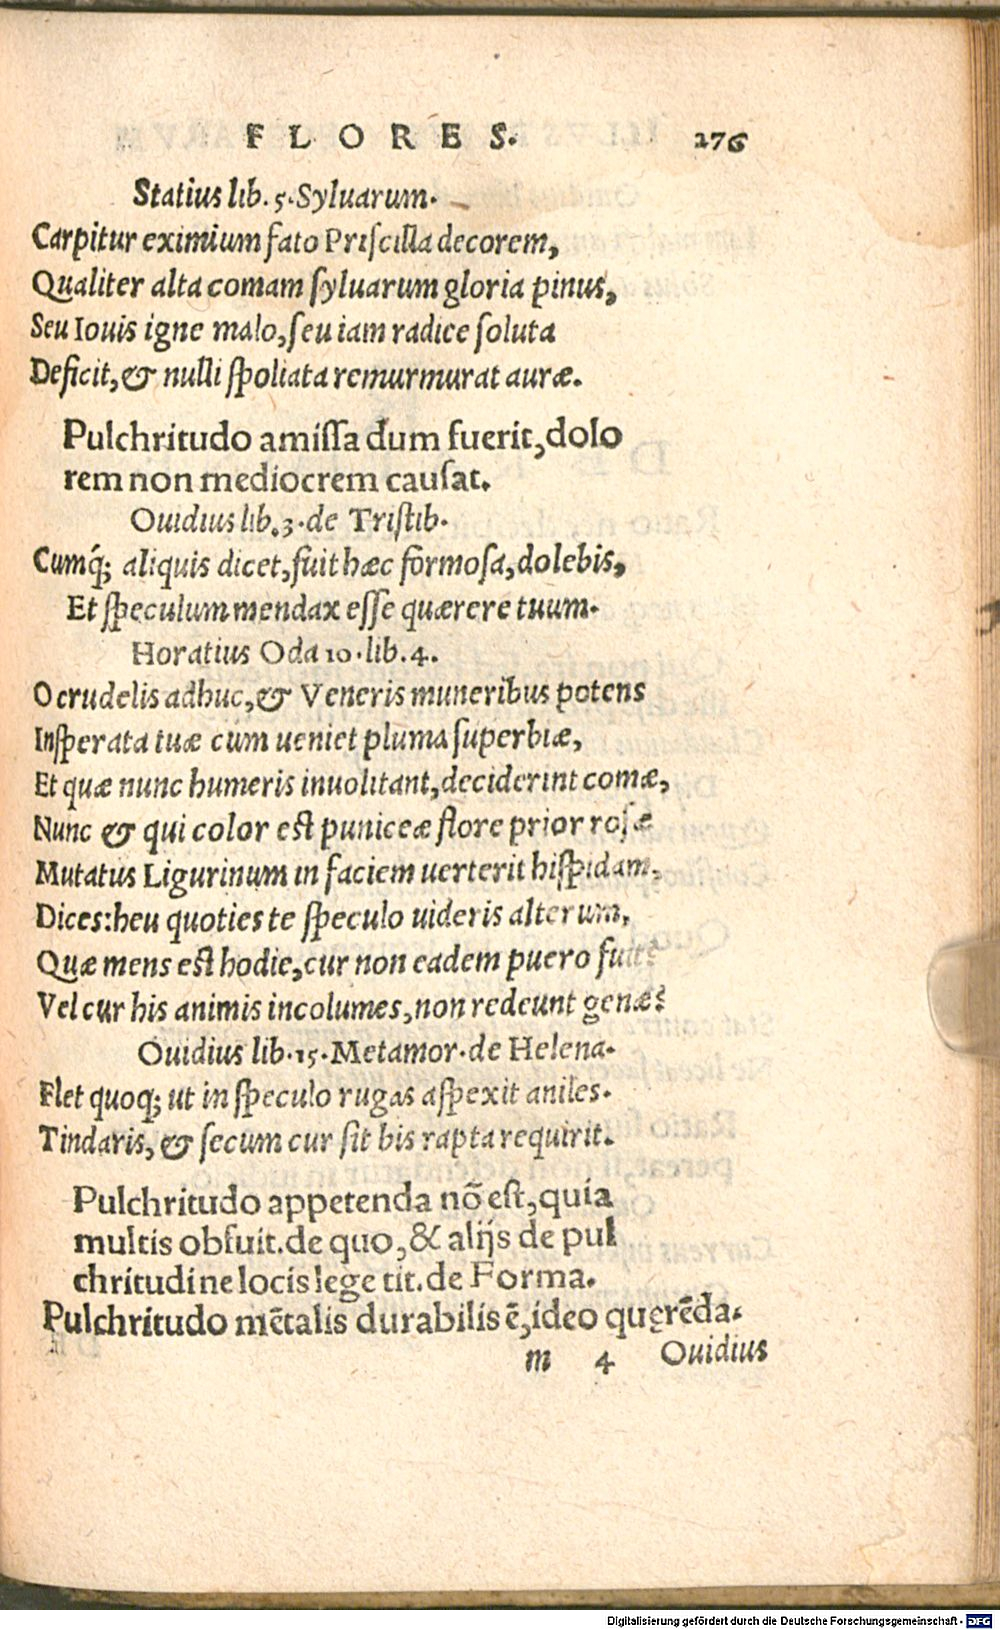 FLORES. 276
Statius lib. 5. Syluarum.
Carpitur eximium fato Priſcilla decorem,
Qualiter alta comam ſyluarum gloria pinus,
Seu Iouis igne malo, ſeu iam radice ſoluta
Deficit, & nulli ſpoliata remurmurat auræ.
Pulchritudo amiſſa dum fuerit, dolo
rem non mediocrem cauſat.
Ouidius lib. 3. de Triſtib.
Cumq́; aliquis dicet, fuit hæc formoſa, dolebis,
Et ſpeculum mendax eſſe quærere tuum.
Horatius Oda 10. lib. 4.
O crudelis adhuc, & Veneris muneribus potens
Inſperata tuæ cum ueniet pluma ſuperbiæ,
Et quæ nunc humeris inuolitant, deciderint comæ,
Nunc & qui color eſt puniceæ flore prior roſæ
Mutatus Ligurinum in faciem uerterit hiſpidam,
Dices: heu quoties te ſpeculo uideris alterum,
Quæ mens eſt hodie, cur non eadem puero fuit?
Vel cur his animis incolumes, non redeunt genæ?
Ouidius lib. 15. Metamor. de Helena.
Flet quoq; ut in ſpeculo rugas aſpexit aniles.
Tindaris, & ſecum cur ſit bis rapta requirit.
Pulchritudo appetenda nō eſt, quia
multis obfuit. de quo, & alijs de pul
chritudine locis lege tit. de Forma.
Pulchritudo mētalis durabilis ē, ideo querēda.
m 4 Ouidius
Digitalisierung gefördert durch die Deutsche Forschungsgemeinschaft - DFG